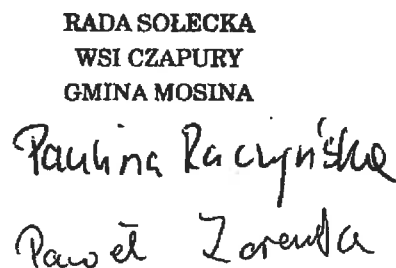 RADA SOŁECKA
WSI CZAPURY
GMINA MOSINA
Paulina Raczyńska
Paweł Zaremba